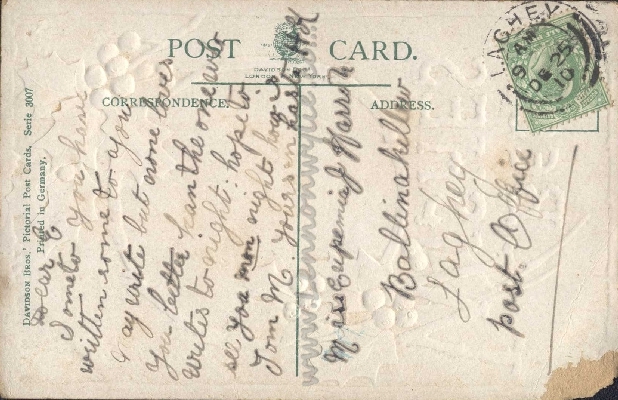 POST CARD.
CORRESPONDENCE.
ADDRESS.
DAVIDSON BROS.' Pictorial Post Cards, Serie 3007
Printed in Germany.
LAGHEY
9 AM
DE 25
10
Dear
you have
written some to you
may write but none loves
you better than the one who
writes to night. hope to
see you mon night
Tom M. Yours
Miss Eupemia J Warron
Ballinakillew
Laghey
post. Office